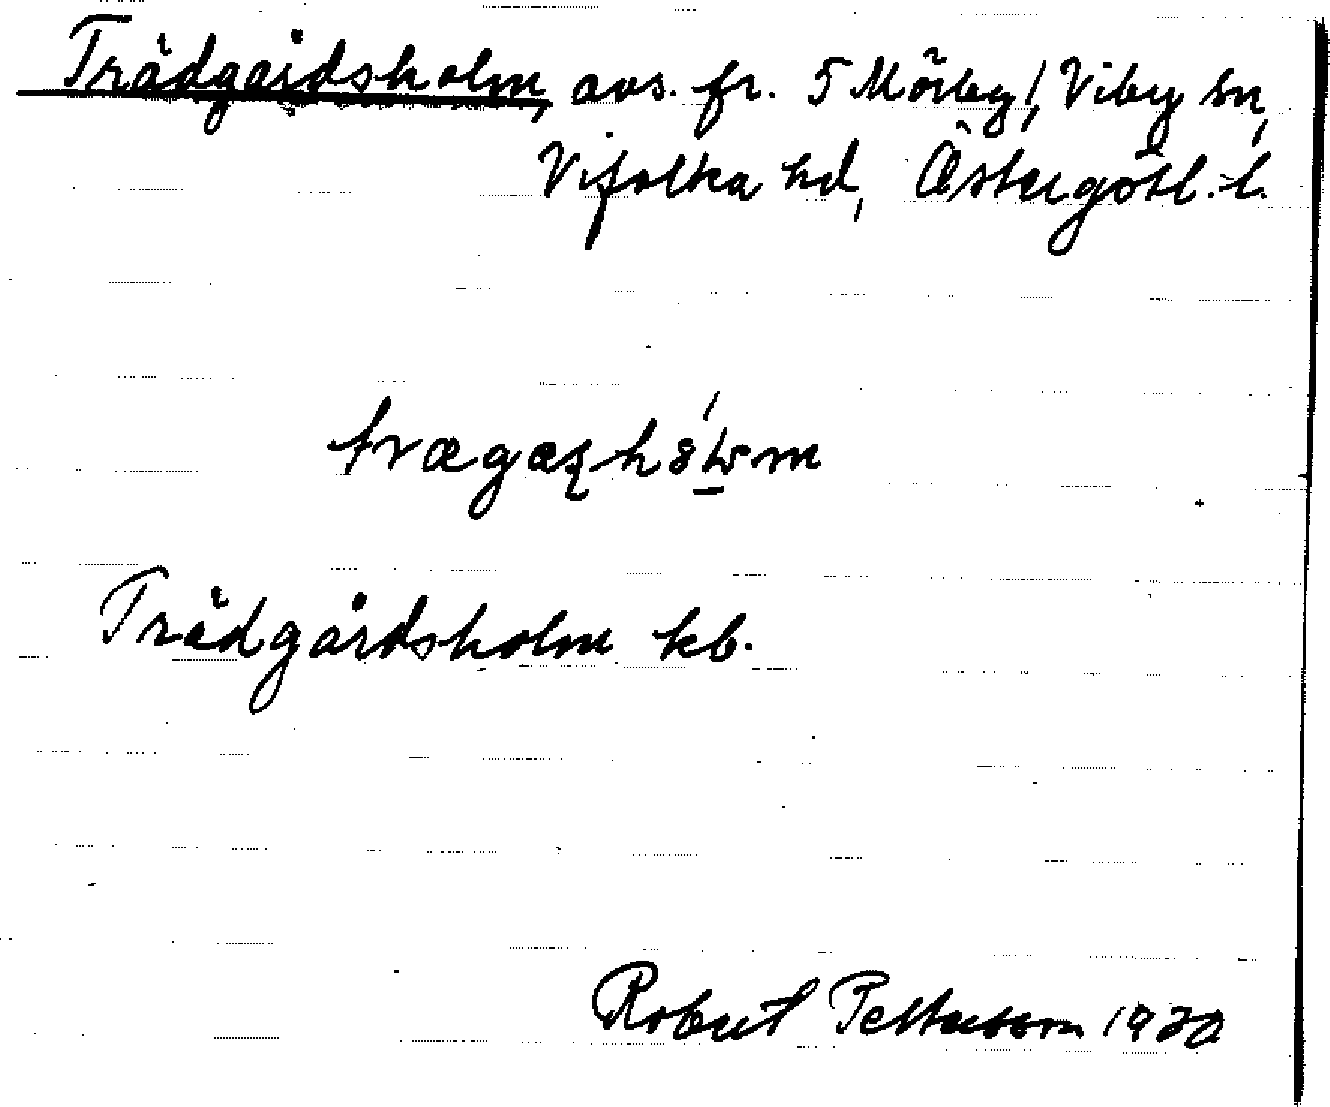 Trädgårdsholm, avs. fr. 5 Mörby /, Viby sn,
Vifolka hd, Östergötl. l.
Trädgårdsholm kb.
Robert Petterson 1920